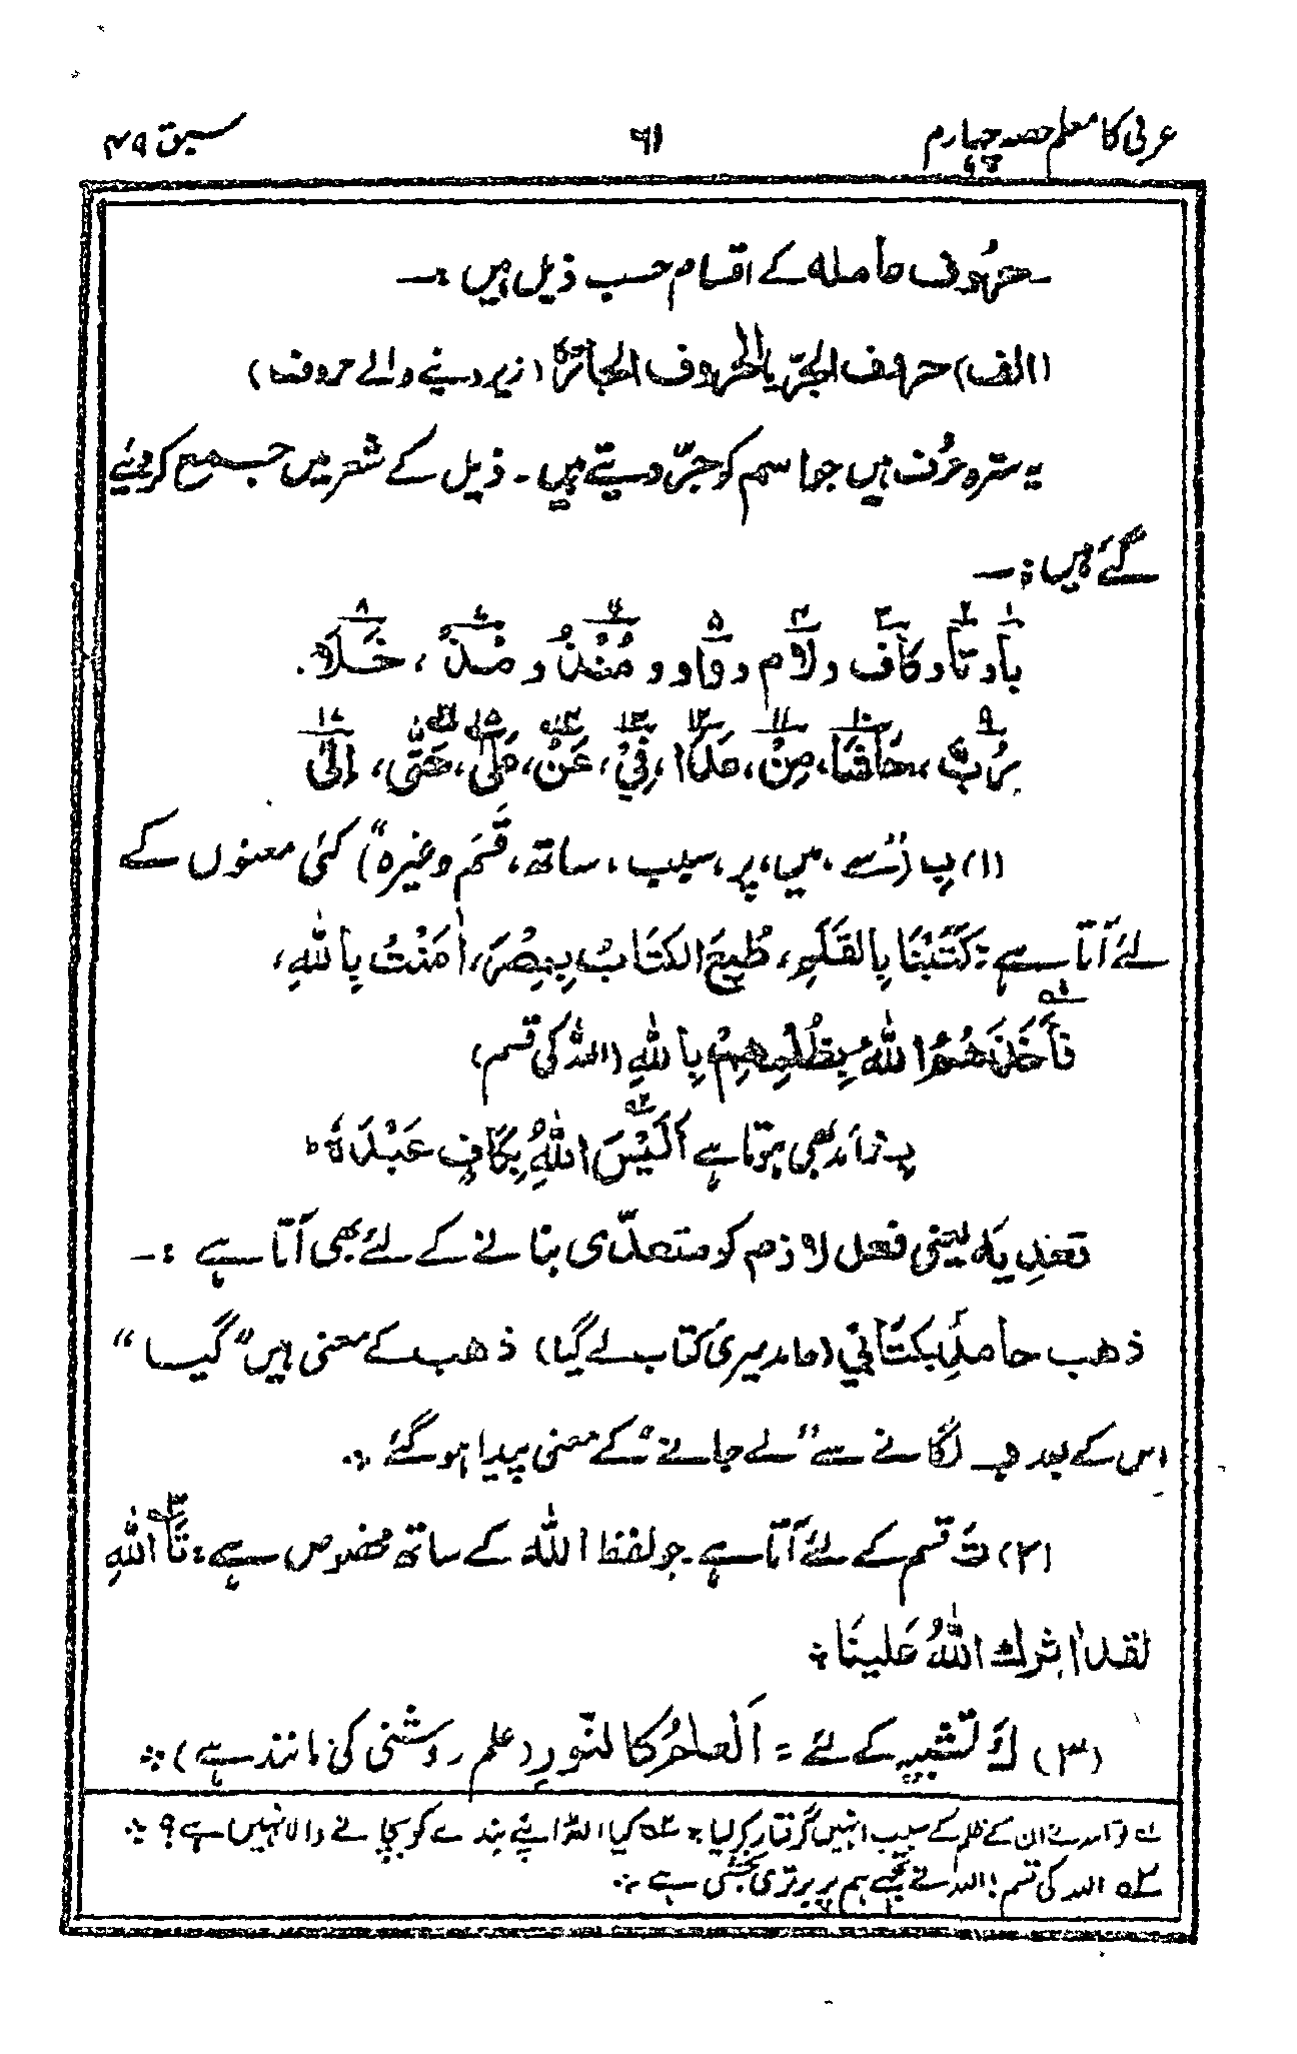 عربی کا معلم حصہ چہارم ۶۱ سبق ۴۹
حروف عاملہ کے اقسام حسب ذیل ہیں :—
(الف) حروف الجرّ یا الحروف الجارّة (زیر دینے والے حروف)
یہ سترہ حرف ہیں جو اسم کو جرّ دیتے ہیں ۔ ذیل کے شعر میں جمع کر دیئے
گئے ہیں :—
۱ ۲ ۳ ۴ ۵ ۶ ۷ ۸
با و تا و کاف و لام و واو و مُنْذُ و مُذْ ، خَلَا .
۹ ۱۰ ۱۱ ۱۲ ۱۳ ۱۴ ۱۵ ۱۶ ۱۷
رُبَّ ، حَاشَا ، مِنْ ، عَدَا ، فِيْ ، عَنْ ، عَلٰى ، حَتّٰى ، اِلٰى
(۱) بِ (”سے ، میں ، پر ، سبب ، ساتھ ، قَسَم وغیرہ“) کئی معنوں کے
لئے آتا ہے : كَتَبْنَا بِالقَلَمِ ، طُبِعَ الكتَابُ بِمِصْرَ ، اٰمَنْتُ بِاللّٰهِ ،
فَأَخَذَهُمُ اللّٰهُ بِظُلْمِهِمْ ۱ بِاللّٰهِ (اللہ کی قسم)
بِ زائد بھی ہوتا ہے اَلَيْسَ اللّٰهُ بِكَافٍ عَبْدَهٗ ۲ ط
تعدِیَہ یعنی فعل لازم کو متعدّی بنانے کے لئے بھی آتا ہے :—
ذهب حامدٌ بكتَابي (حامد میری کتاب لے گیا) ذهب کے معنی ہیں ”گیا“
اِس کے بعد بِ لگانے سے ”لے جانے“ کے معنی پیدا ہو گئے ۔:
(۲) تَ قسم کے لئے آتا ہے جو لفظ اللّٰہ کے ساتھ مخصوص ہے : تَاللّٰهِ ۳
لقد اٰثرك اللّٰهُ عَلينَا ۔:
(۳) كَ تشبیہ کے لئے = اَلعلمُ كالنّورِ (علم روشنی کی مانند ہے) ۔:
۱ تو اللہ نے ان کے ظلم کے سبب انہیں گرفتار کر لیا ۔: ۲ کیا اللہ اپنے بندے کو بچانے والا نہیں ہے ؟ ۔:
۳ اللہ کی قسم ! اللہ نے تجھے ہم پر برتری بخشی ہے ۔: